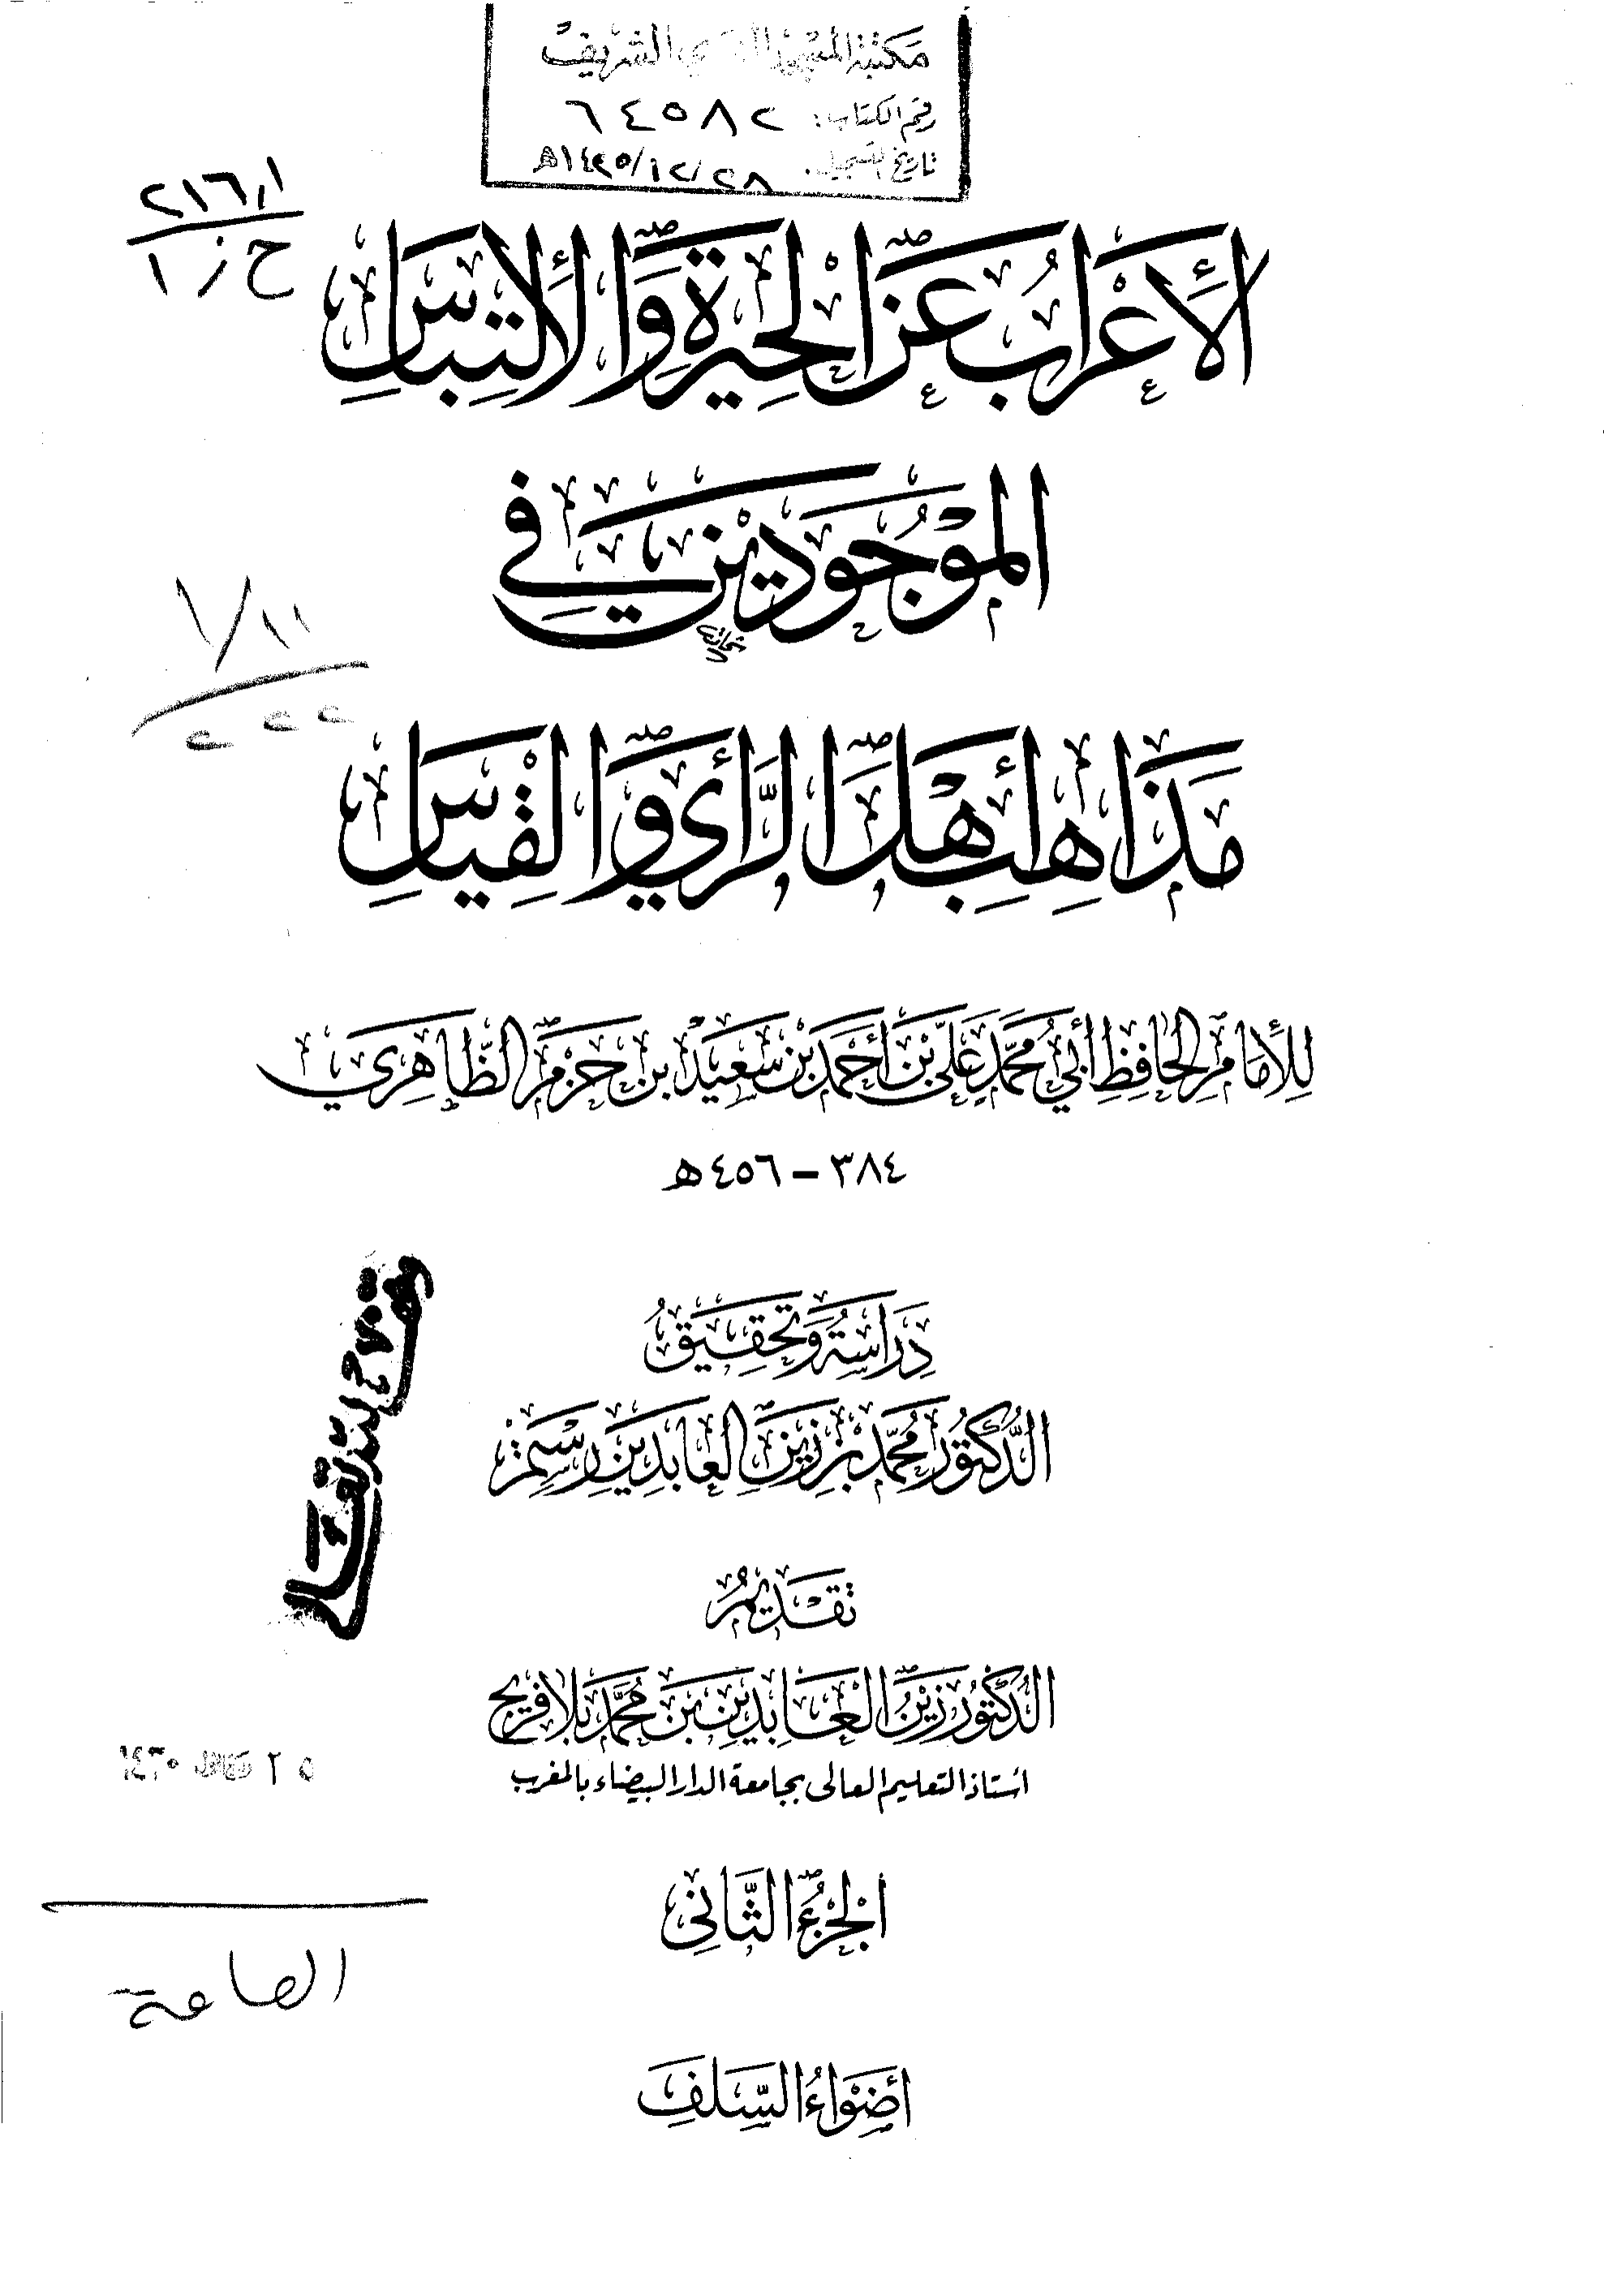 مكتبة المسجد النبوي الشريف
رقم الكتاب: ٦٤٥٨٢
تاريخ التسجيل: ١٤٢٥/١٢/٢٨هـ
٢١٦,١
ح ز ا
الأَعْرَابُ عَنِ الحَيْرَةِ وَالالْتِبَاسِ
المَوْجُودَيْنِ فِي
مَذَاهِبِ أَهْلِ الرَّأْيِ وَالْقِيَاسِ
لِلإِمَامِ الحَافِظِ أَبِي مُحَمَّد عَلِيّ بْن أَحْمَد بْن سَعِيْد ابن حَزْم الظَّاهِرِي
٣٨٤ – ٤٥٦ هـ
دِرَاسَةُ وَتَحْقِيقُ
الدُّكْتُورُ مُحَمَّد بْن زَيْنِ العَابِدِينَ رُسْتُم
تَقْدِيمُ
الدُّكْتُورُ زَيْنُ الْعَابِدِينَ بْن مُحَمَّد بَلَافْرِيج
أستاذ التعليم العالى بجامعة الدار البيضاء بالمغرب
الجُزْءُ الثَّانِى
العامة
أَضْوَاءُ السَّلَفِ